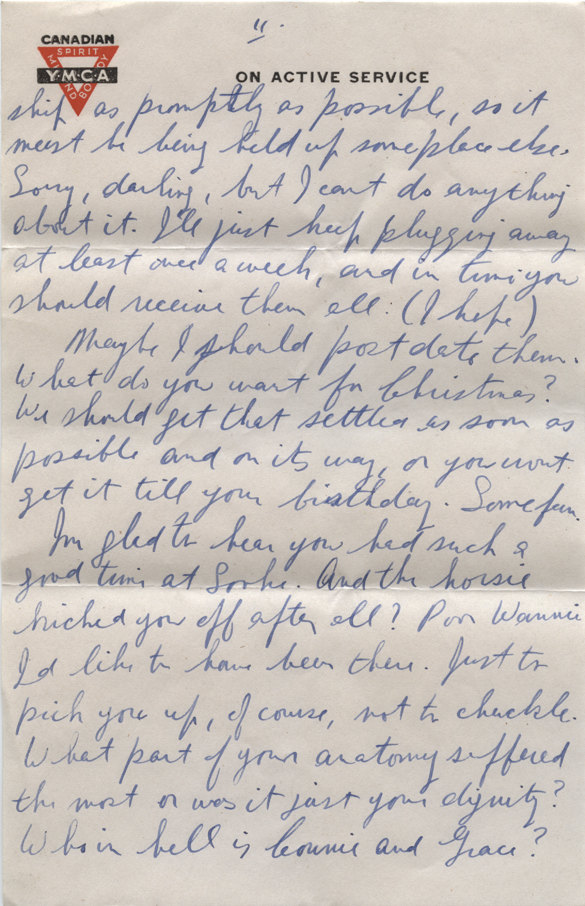 "
CANADIAN
SPIRIT
MIND
BODY
Y·M·C·A
ON ACTIVE SERVICE
ship as promptly as possible, so it
must be being held up someplace else.
Sorry, darling, but I can't do anything
about it. I'll just keep plugging away
at least once a week, and in time you
should receive them all. (I hope)
Maybe I should post date them.
What do you want for Christmas?
We should get that settled as soon as
possible and on its way, or you wont
get it till your birthday. Some fun.
Im glad to hear you had such a
good time at Sooke. And the horsie
kicked you off after all? Poor Wannie
I'd like to have been there. Just to
pick you up, of course, not to chuckle.
What part of your anatomy suffered
the most or was it just your dignity?
Who in hell is Connie and Grace?